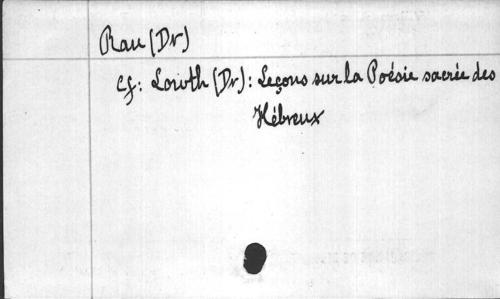 Rau (Dr)
Cf: Lowth (Dr): Leçons sur la Poésie sacrée des
Hébreux